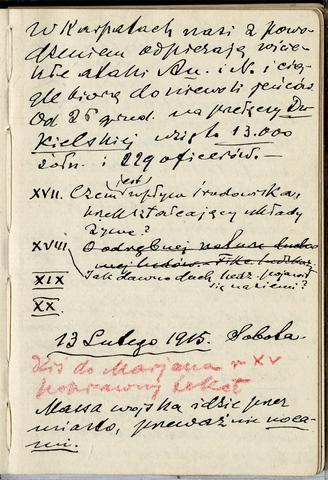 W Karpatach nasi z powo-
dzeniem odpierają wście-
kłe ataki Au. i N. i cią-
gle biorą do niewoli jeńców.
Od 26 grud. na przełęczy Du-
kielskiej wzięto 13.000
żołn. i 229 oficerów.—
jest
XVII. Czem wpływ środowiska,
przekształcający układy
żywe?
XVIII O odrębnej naturze
XIX Jak dawno duch ludz. pojawił
się na ziemi?
XX.
13 Lutego 1915. Sobota.
Dziś do Marjana w XV
poprawny tekst
Massa wojska idzie przez
miasto, przeważnie noca-
mi.